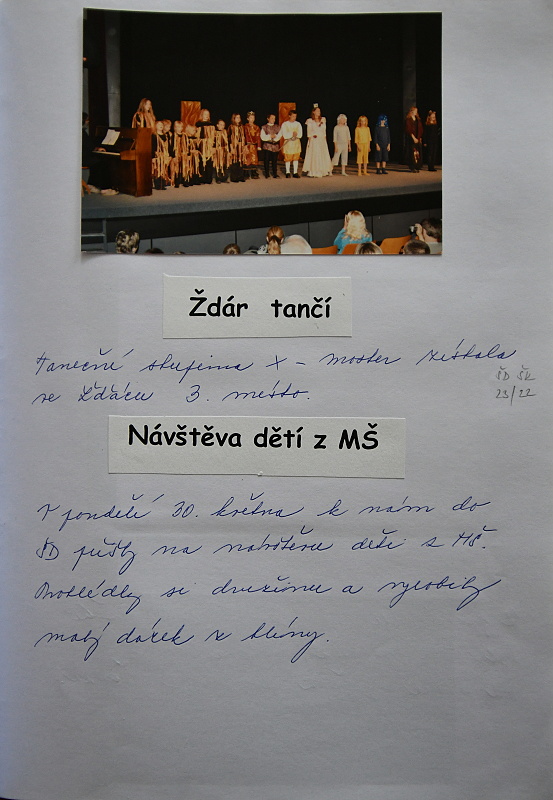 Ždár tančí
Taneční skupina X - moster získala
ve Žďáru 3. místo.
ŠD ŠK
23/22
Návštěva dětí z MŠ
V pondělí 30. května k nám do
ŠD přišly na návštěvu děti z MŠ.
Prohlédly si družinu a vyrobily
malý dárek z hlíny.